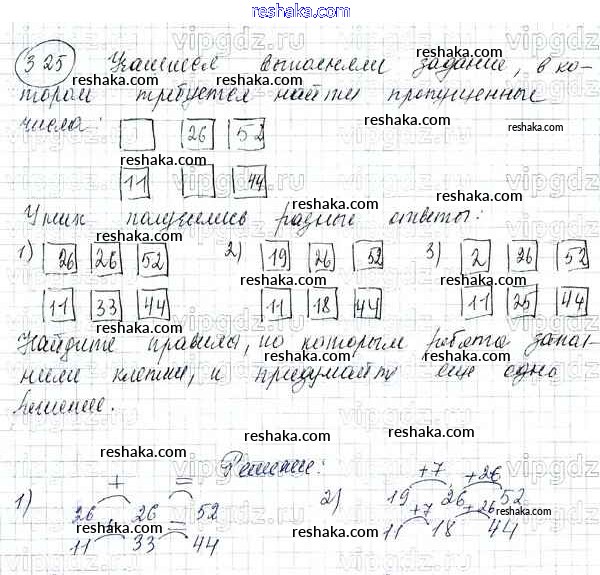 reshaka.com
325 Учащиеся выполняли задание, в ко-
тором требуется найти пропущенные
числа:
26 52
11 44
У них получились разные ответы:
1) 26 26 52 2) 19 26 52 3) 2 26 52
11 33 44 11 18 44 11 25 44
Найдите правила, по которым ребята запол-
нили клетки, и придумайте еще одно
решение.
Решение:
+ = +7 +26
1) 26 26 52 2) 19 26 52
= +7 +26
11 33 44 11 18 44